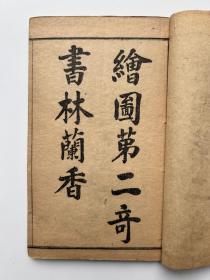 繪圖第二奇
書林蘭香